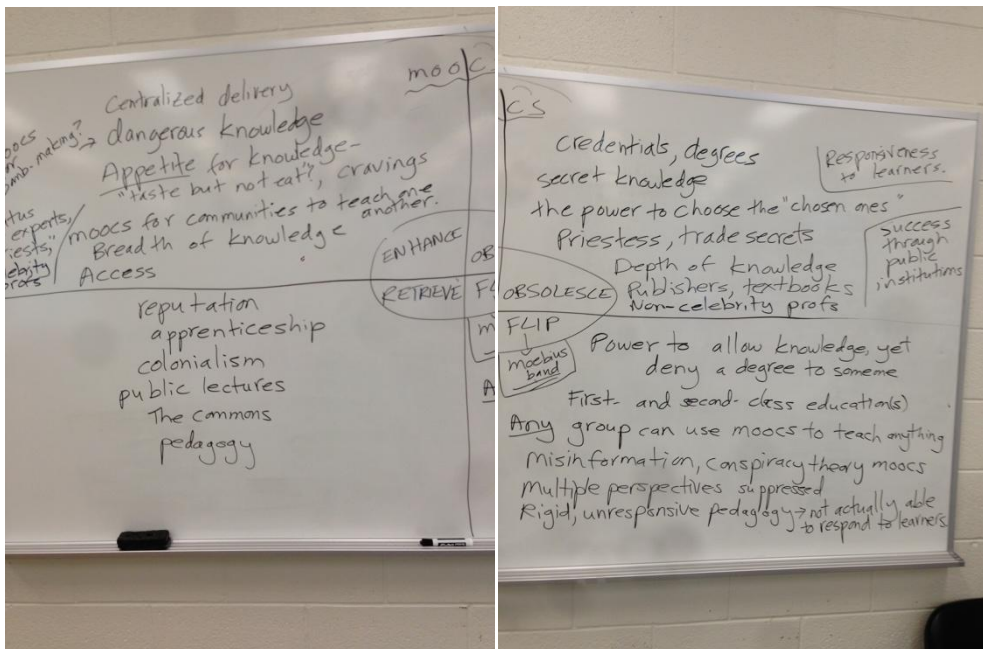 mooc
Centralized delivery
dangerous knowledge
Appetite for knowledge-
"taste but not eat"?, cravings
moocs for communities to teach one
another.
Breadth of knowledge
Access
making? →
experts,
ENHANCE
OB
RETRIEVE
reputation
apprenticeship
colonialism
public lectures
The commons
pedagogy
A
CS
credentials, degrees
secret knowledge
the power to choose the "chosen ones"
Priestess, trade secrets
Depth of knowledge
Publishers, textbooks
Non-celebrity profs
Responsiveness
to learners.
success
through
public
institutions
OBSOLESCE
FLIP
moebius
band
Power to allow knowledge, yet
deny a degree to someone
First- and second-class education(s)
Any group can use moocs to teach anything
Misinformation, conspiracy theory moocs
Multiple perspectives suppressed
Rigid, unresponsive pedagogy → not actually able
to respond to learners.